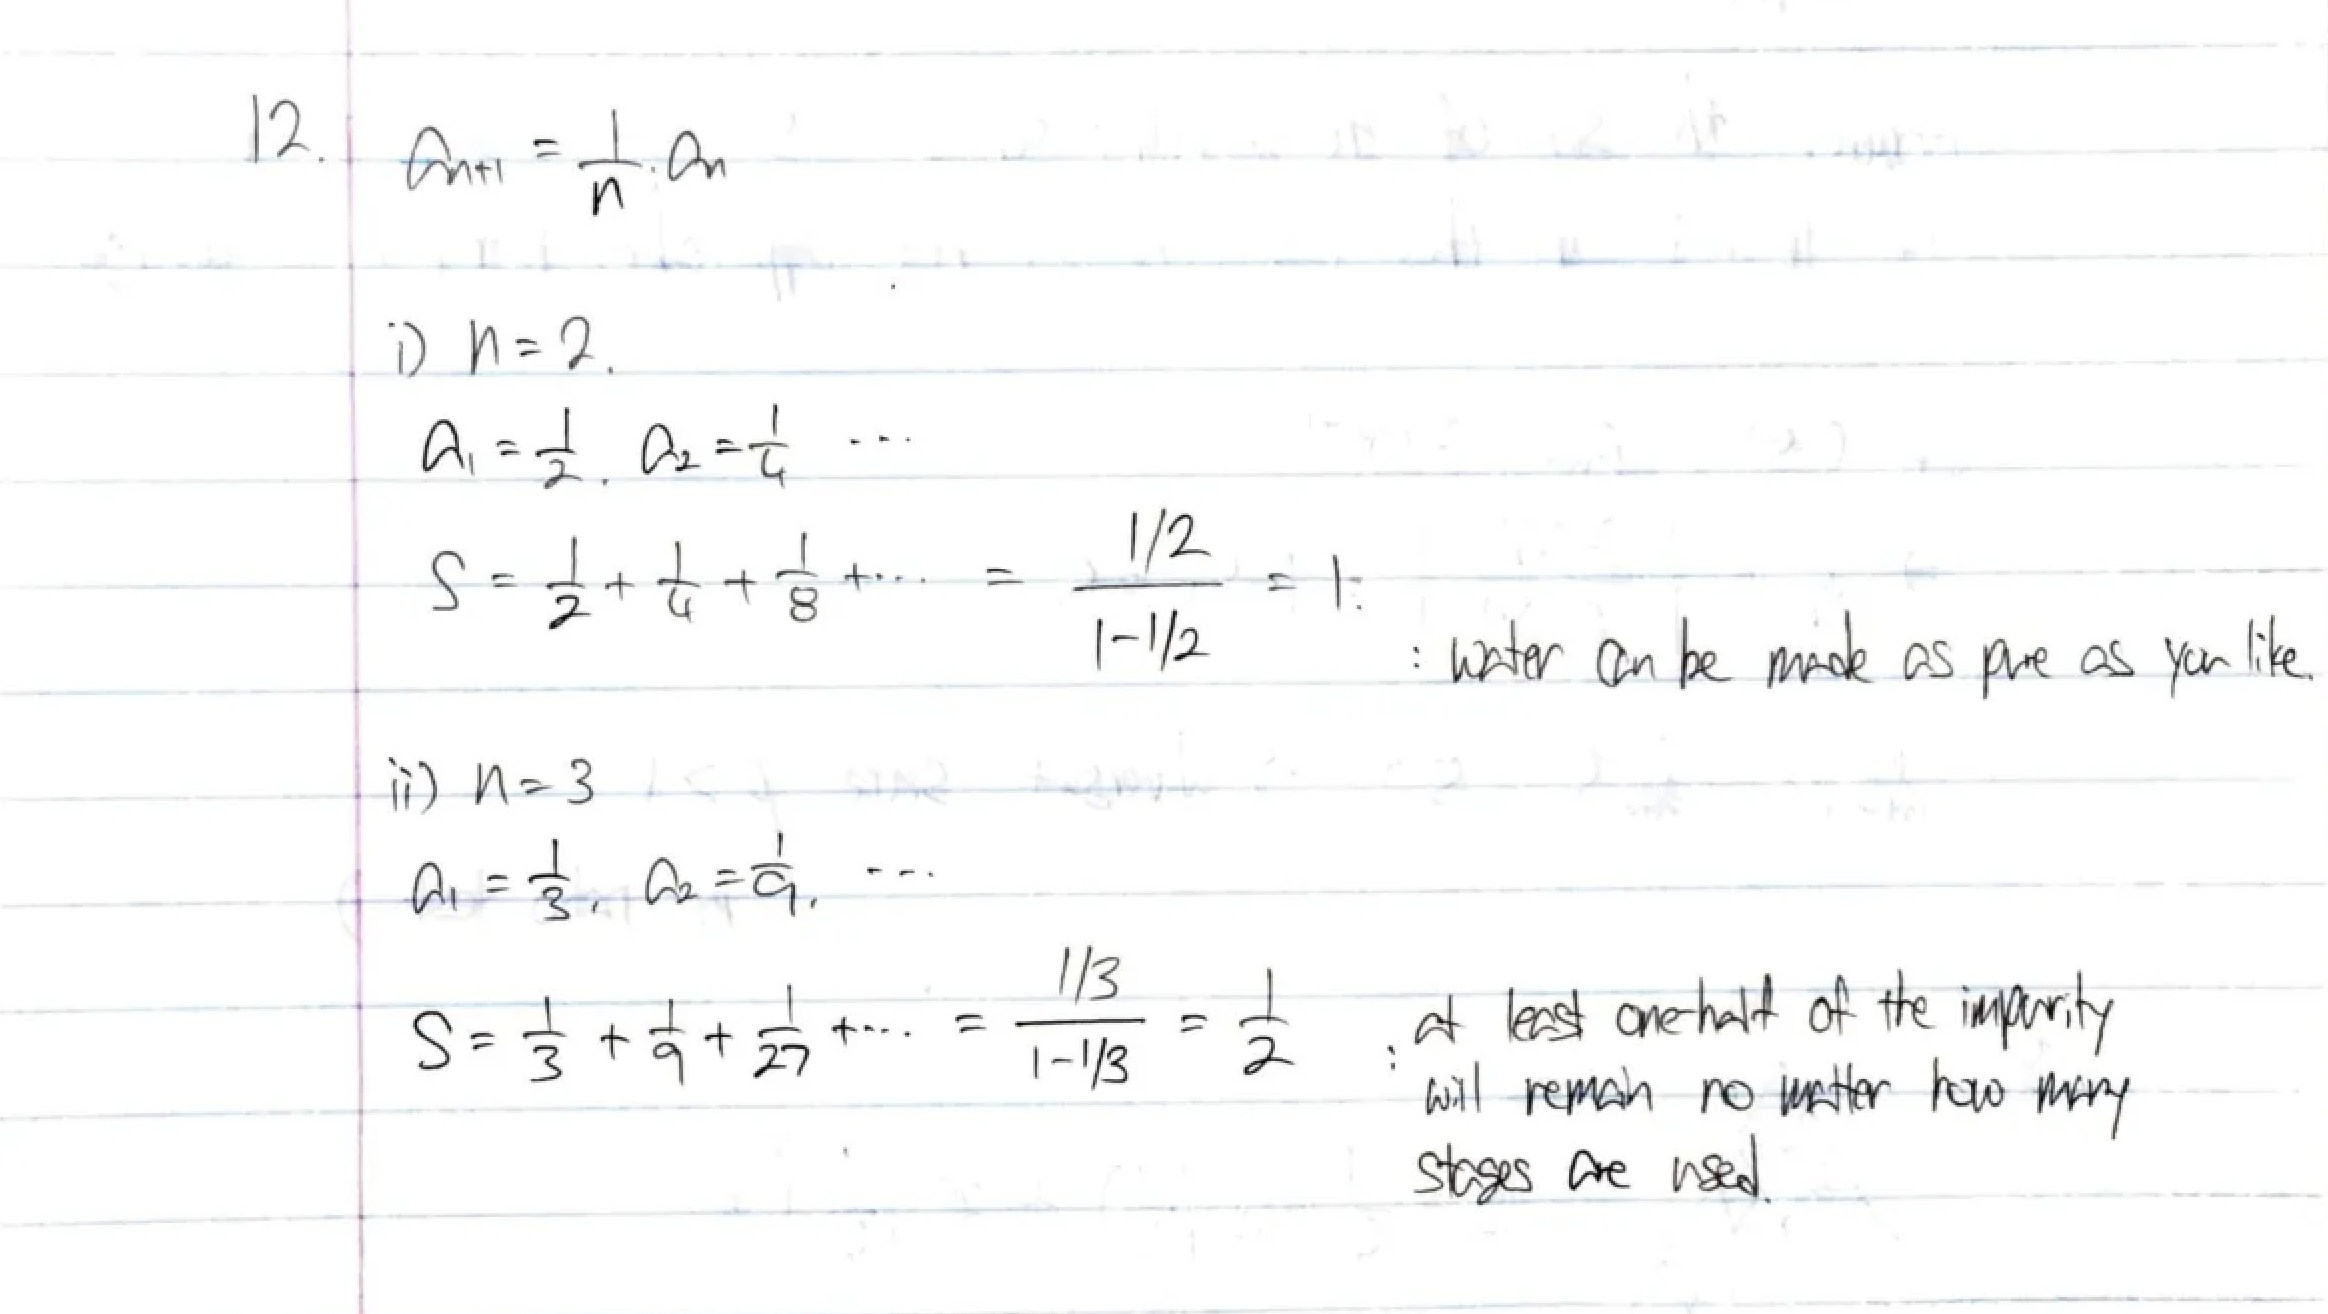 12. aₙ₊₁ = 1/n · aₙ
i) n = 2.
a₁ = 1/2, a₂ = 1/4 ...
S = 1/2 + 1/4 + 1/8 + ... = (1/2)/(1-1/2) = 1.
: water can be made as pure as you like.
ii) n = 3
a₁ = 1/3, a₂ = 1/9, ...
S = 1/3 + 1/9 + 1/27 + ... = (1/3)/(1-1/3) = 1/2 : at least one-half of the impurity
will remain no matter how many
stages are used.